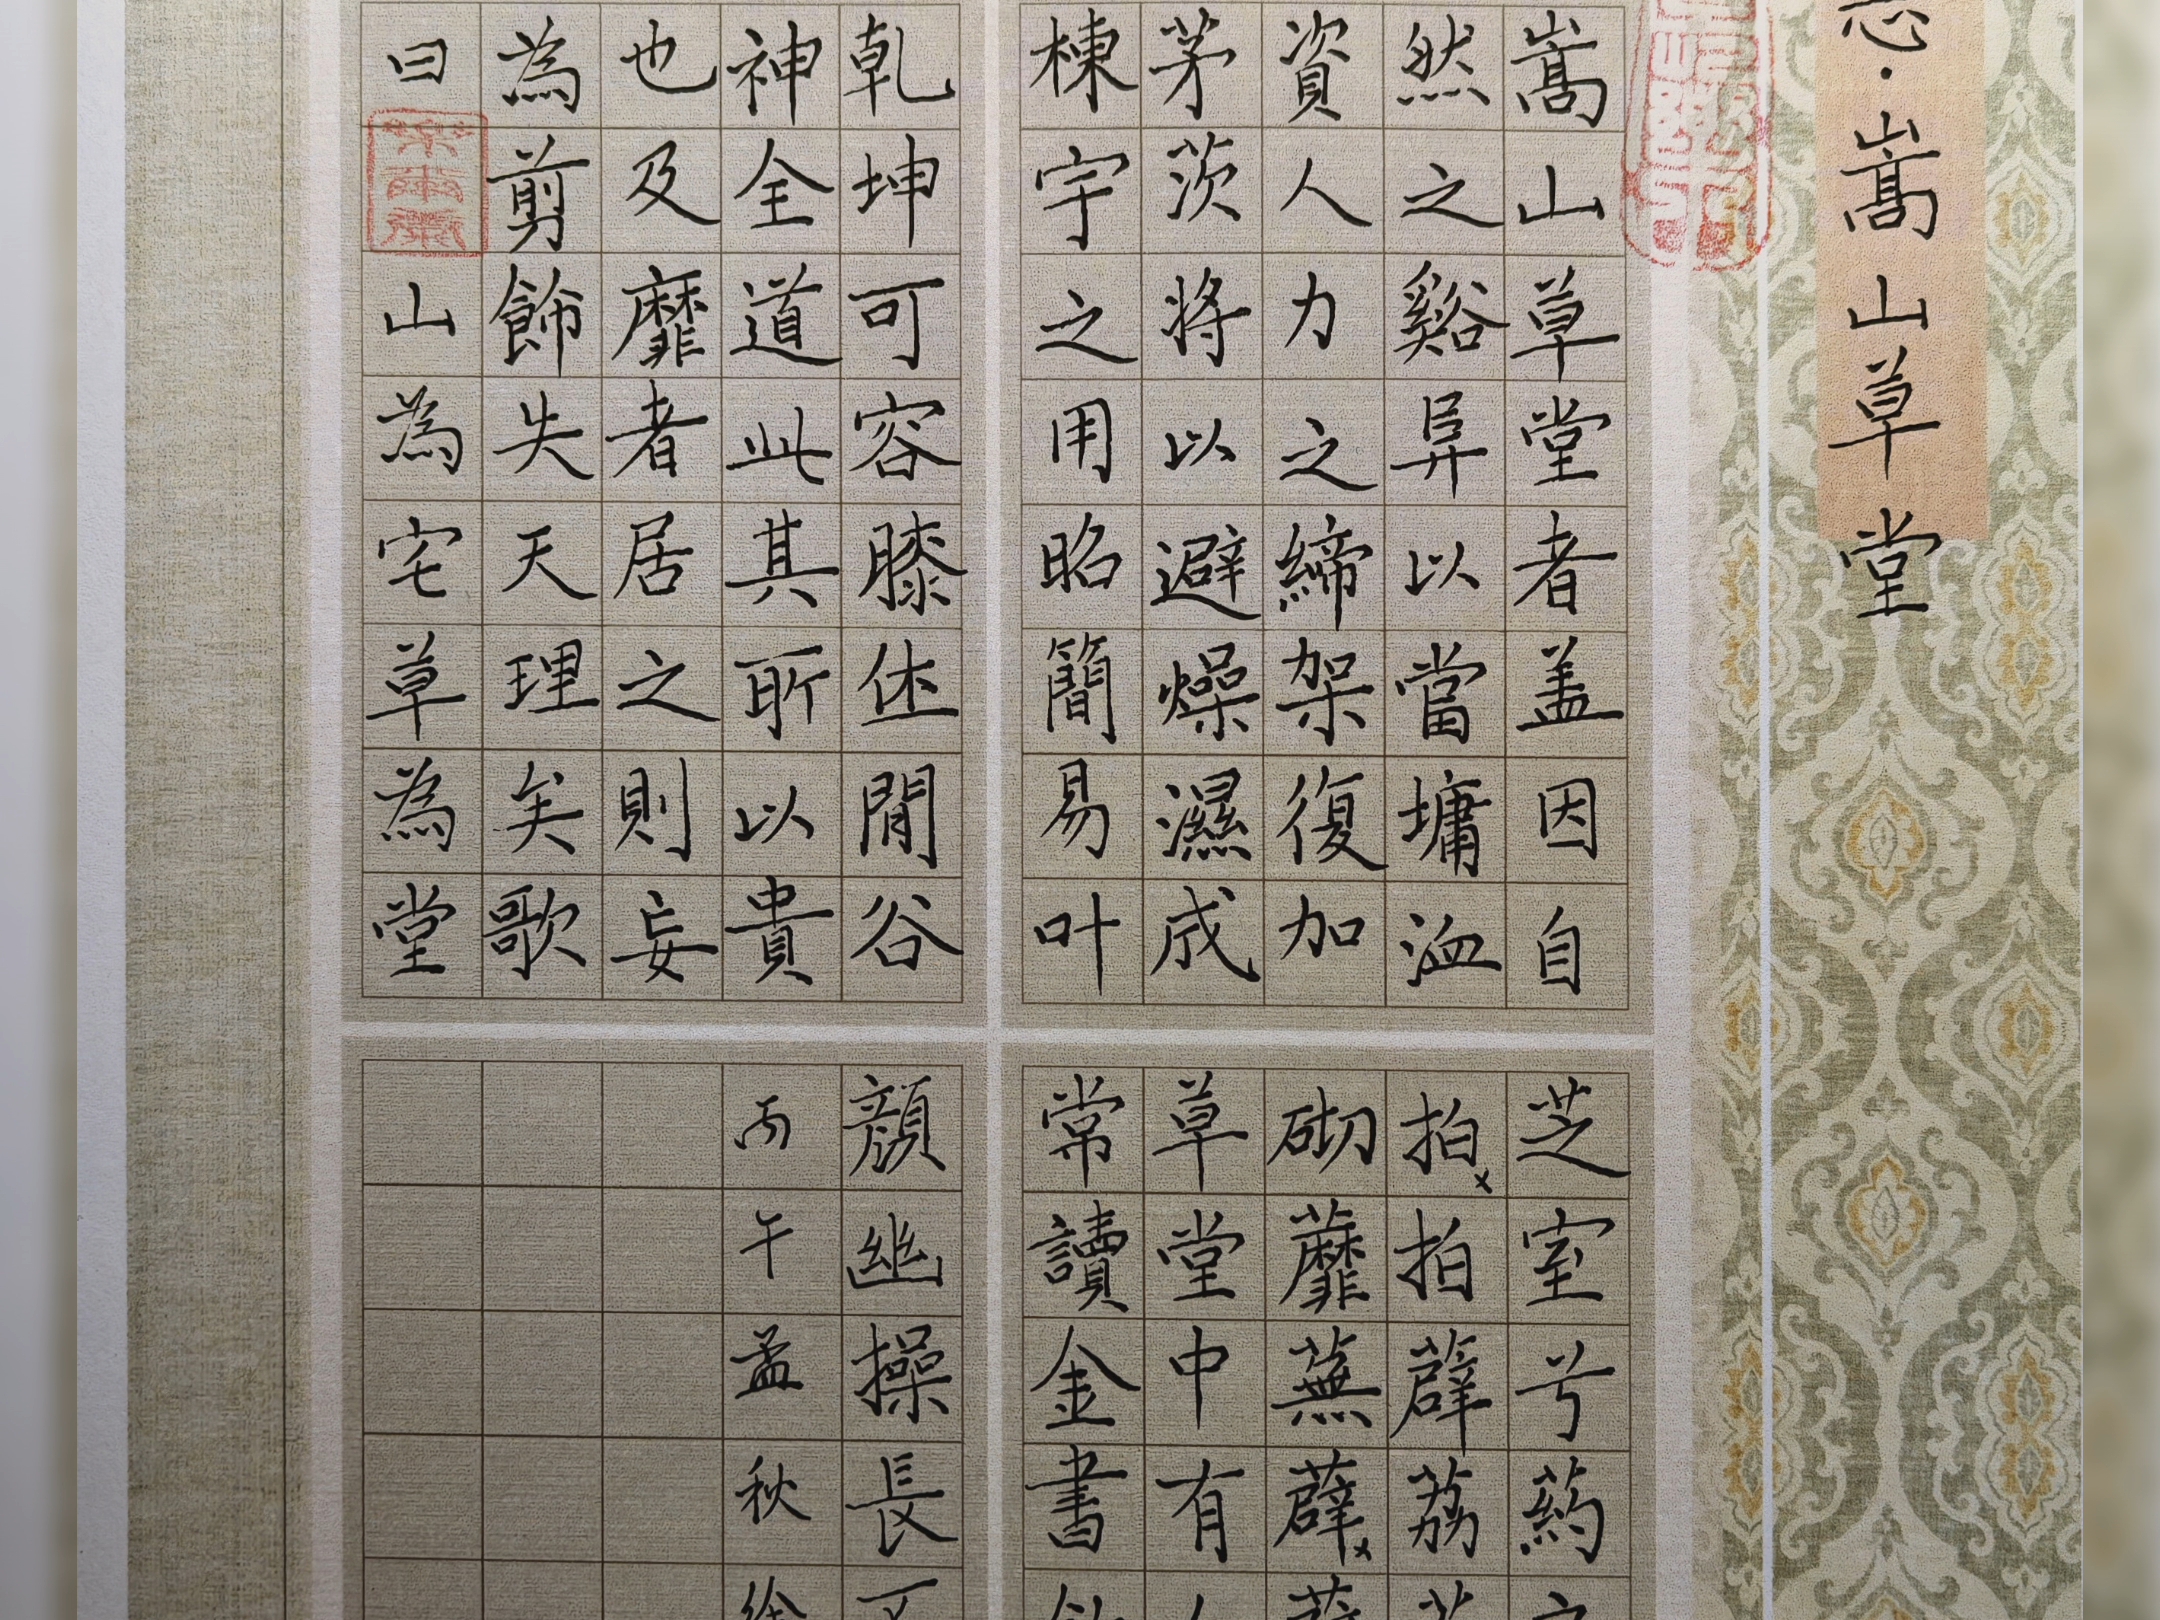 嵩山草堂
嵩山草堂者盖因自
然之谿阜以當墉洫
資人力之締架復加
茅茨將以避燥濕成
棟宇之用昭簡易叶
乾坤可容膝休閒谷
神全道此其所以貴
也及靡者居之則妄
為剪飾失天理矣歌
曰山為宅草為堂
芝室兮葯
拍拍薜荔
砌蘼蕪薜
草堂中有
常讀金書
顏幽操長
丙午孟秋徐